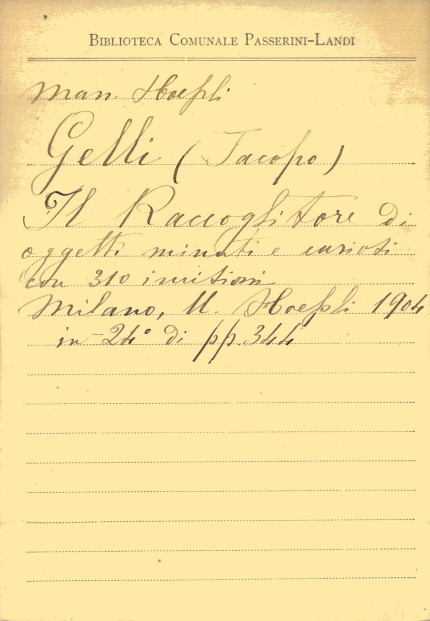 BIBLIOTECA COMUNALE PASSERINI-LANDI
Man. Hoepli
Gelli (Jacopo)
Il Raccoglitore di
oggetti minuti e curiosi
con 310 incisioni
Milano, U. Hoepli 1904
in-24° di pp. 344